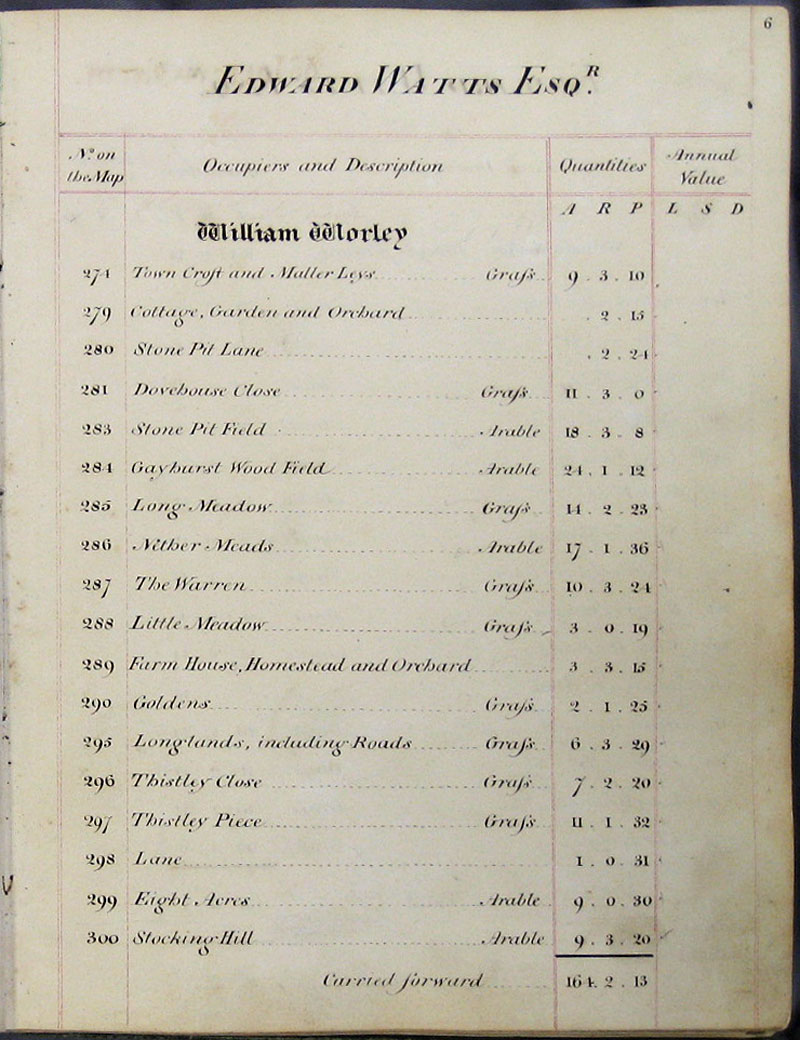 6
EDWARD WATTS ESQR.
No. on the Map Occupiers and Description Quantities Annual Value
A R P L S D
William Worley
274 Town Croft and Leys Graſs 9 . 3 . 10
279 Cottage, Garden and Orchard . 2 . 15
280 Stone Pit Lane . 2 . 24
281 Dovehouse Close Graſs 11 . 3 . 0
283 Stone Pit Field Arable 18 . 3 . 8
284 Gayhurst Wood Field Arable 24 . 1 . 12
285 Long Meadow Graſs 14 . 2 . 23
286 Nether Meads Arable 17 . 1 . 36
287 The Warren Graſs 10 . 3 . 24
288 Little Meadow Graſs 3 . 0 . 19
289 Farm House, Homestead and Orchard 3 . 3 . 15
290 Goldens Graſs 2 . 1 . 25
295 Longlands, including Roads Graſs 6 . 3 . 29
296 Thistley Close Graſs 7 . 2 . 20
297 Thistley Piece Graſs 11 . 1 . 32
298 Lane 1 . 0 . 31
299 Eight Acres Arable 9 . 0 . 30
300 Stocking Hill Arable 9 . 3 . 20
Carried forward 164 . 2 . 13